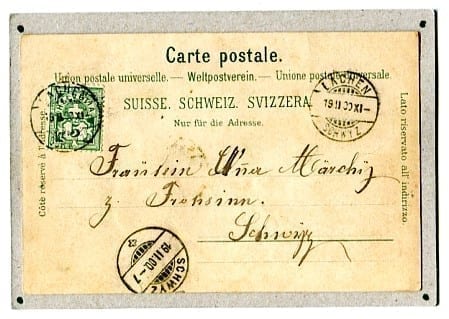 Carte postale.
Union postale universelle. — Weltpostverein. — Unione postale universale
SUISSE. SCHWEIZ. SVIZZERA.
Nur für die Adresse.
Côté réservé à l'adresse
Lato riservato all'indirizzo
LACHEN
19 II 00 XI –
SCHWYZ
5
Fräulein Anna Märchiz
z. Frohsinn.
Schwyz
SCHWYZ
19 II 00 – 7